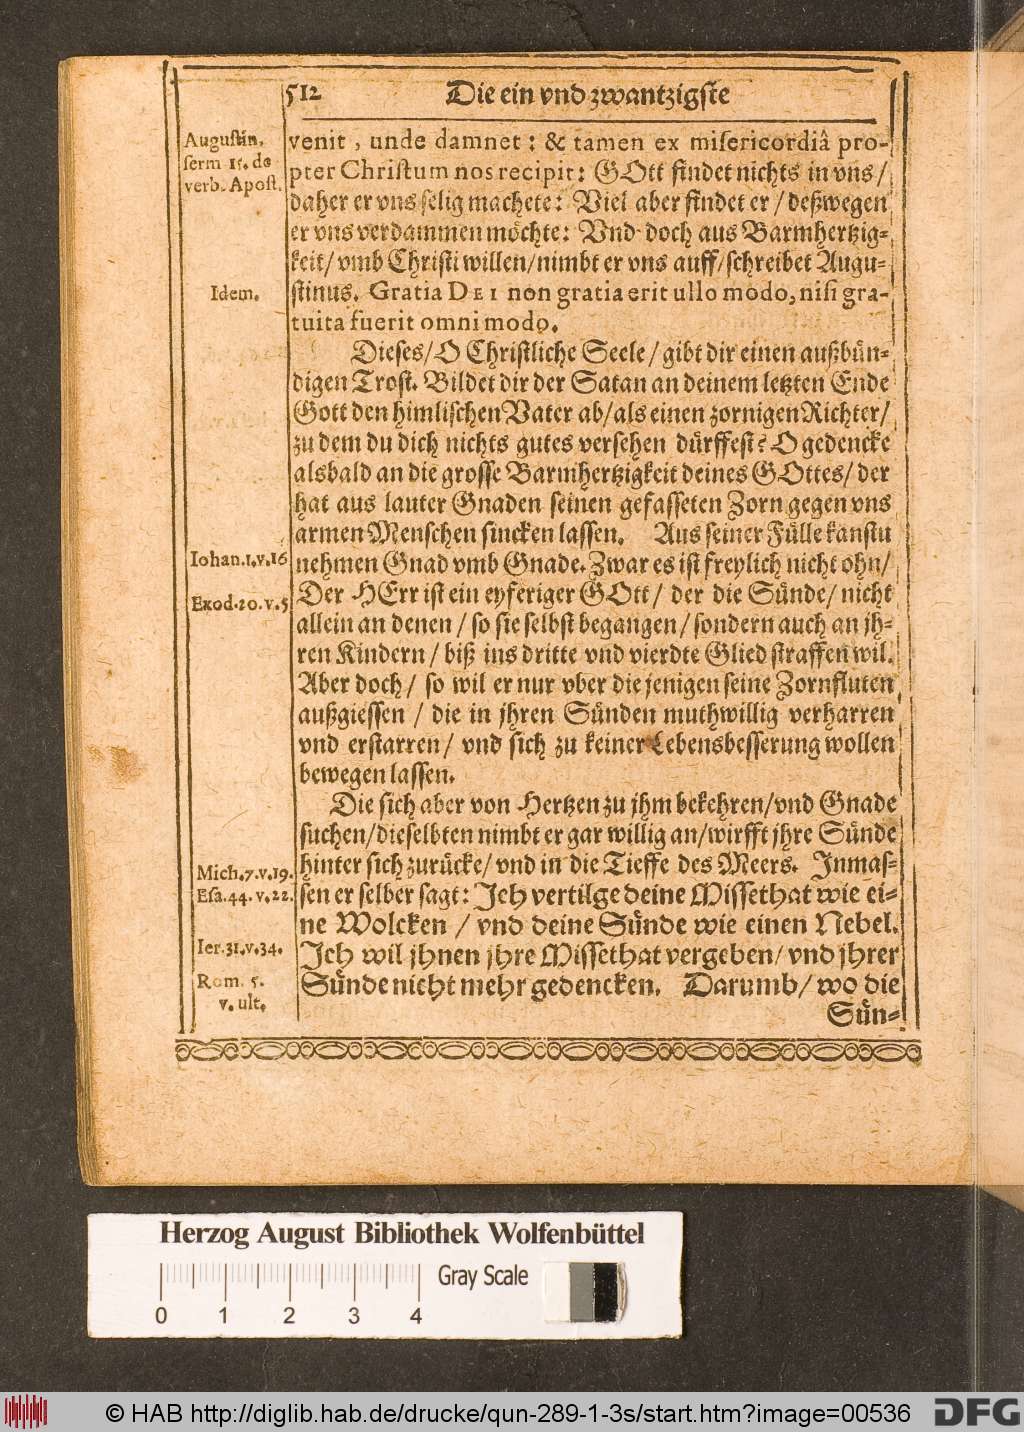 512 Die ein vnd zwantzigste
Augustin.
serm 15. de
verb. Apost.
venit, unde damnet: & tamen ex misericordiâ pro-
pter Christum nos recipit: GOtt findet nichts in vns/
daher er vns selig machete: Viel aber findet er / deßwegen
er vns verdammen möchte: Vnd doch aus Barmhertzig-
keit/ vmb Christi willen/ nimbt er vns auff/ schreibet Augu-
Idem.
stinus. Gratia DEI non gratia erit ullo modo, nisi gra-
tuita fuerit omni modo.
Dieses/ O Christliche Seele / gibt dir einen außbün-
digen Trost. Bildet dir der Satan an deinem letzten Ende
Gott den himlischen Vater ab/ als einen zornigen Richter/
zu dem du dich nichts gutes versehen dürffest? O gedencke
alsbald an die grosse Barmhertzigkeit deines GOttes/ der
hat aus lauter Gnaden seinen gefasseten Zorn gegen vns
armen Menschen sincken lassen. Aus seiner Fülle kanstu
Iohan.1.v.16
nehmen Gnad vmb Gnade. Zwar es ist freylich nicht ohn/
Exod.20.v.5
Der HErr ist ein eyferiger GOtt / der die Sünde/ nicht
allein an denen / so sie selbst begangen / sondern auch an jh-
ren Kindern / biß ins dritte vnd vierdte Glied straffen wil.
Aber doch / so wil er nur vber die jenigen seine Zornfluten
außgiessen / die in jhren Sünden muthwillig verharren
vnd erstarren / vnd sich zu keiner Lebensbesserung wollen
bewegen lassen.
Die sich aber von Hertzen zu jhm bekehren/ vnd Gnade
suchen/ dieselbten nimbt er gar willig an/ wirfft jhre Sünde
Mich.7.v.19.
hinter sich zurücke/ vnd in die Tieffe des Meers. Inmas-
Esa.44.v.22.
sen er selber sagt: Ich vertilge deine Missethat wie ei-
ne Wolcken / vnd deine Sünde wie einen Nebel.
Ier.31.v.34.
Ich wil jhnen jhre Missethat vergeben/ vnd jhrer
Rom. 5.
v. ult.
Sünde nicht mehr gedencken. Darumb/ wo die
Sün-
Herzog August Bibliothek Wolfenbüttel
Gray Scale
0 1 2 3 4
© HAB http://diglib.hab.de/drucke/qun-289-1-3s/start.htm?image=00536 DFG